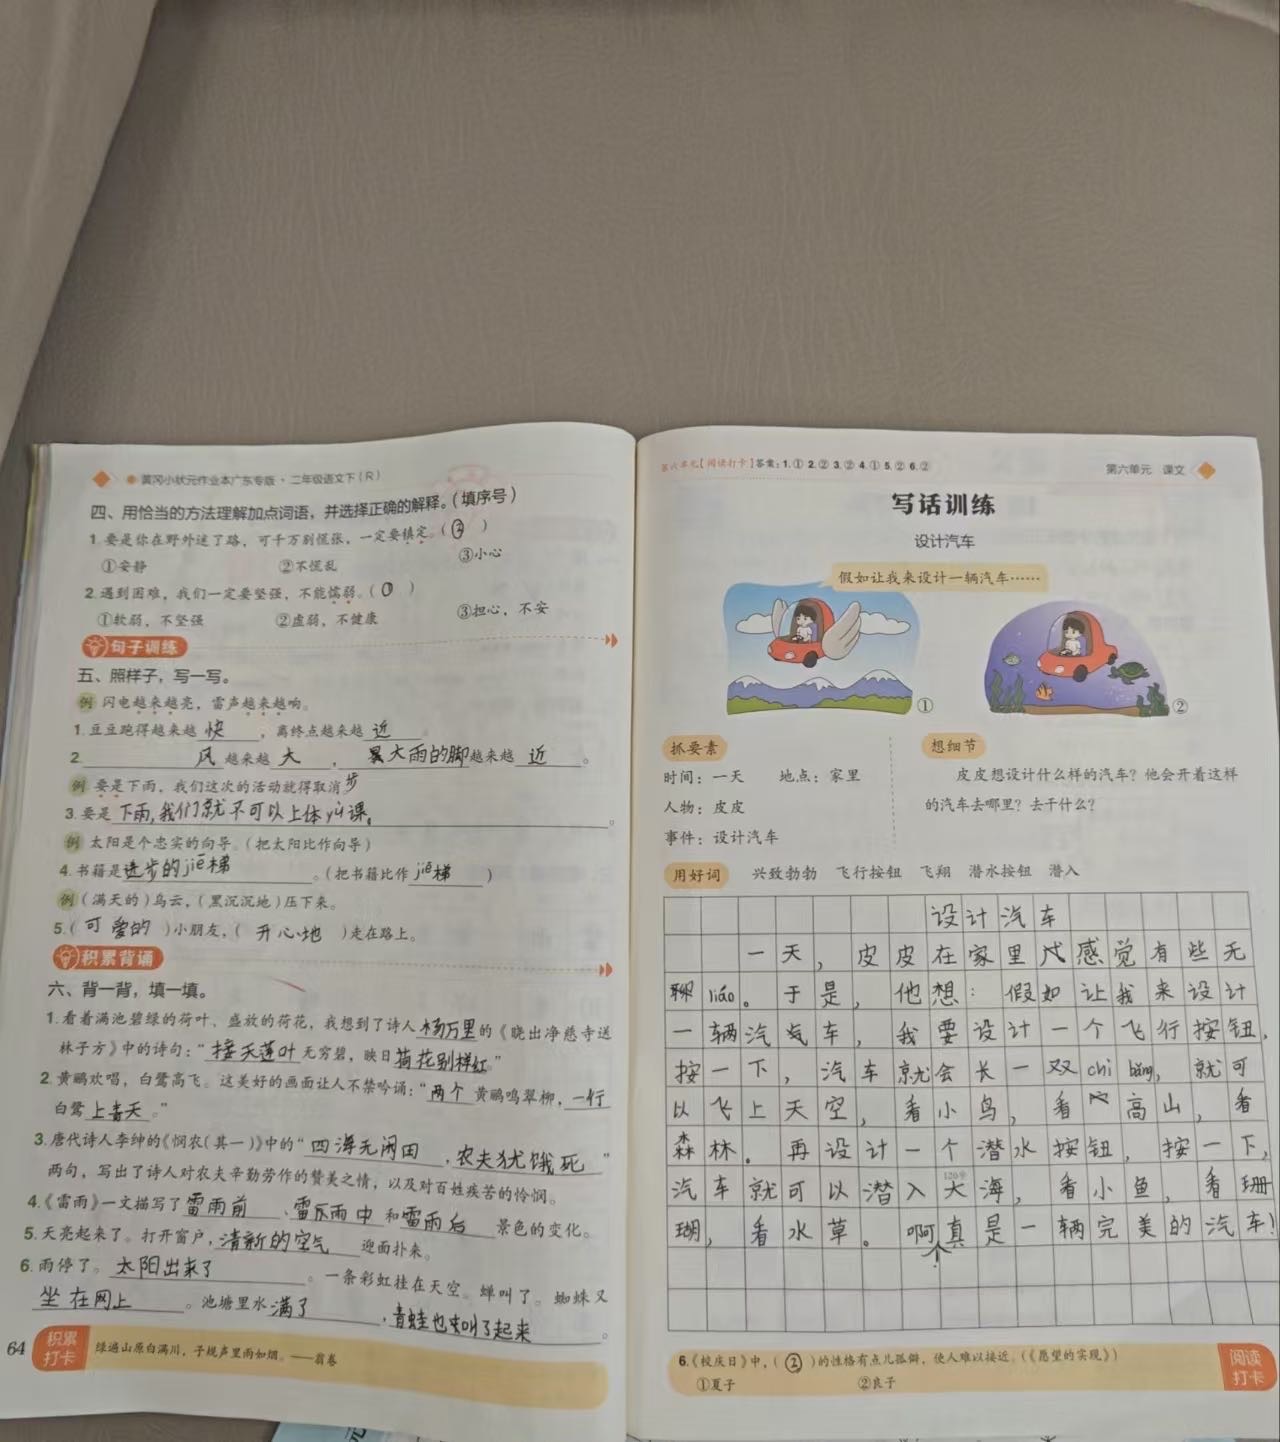 黄冈小状元作业本广东专版·二年级语文下（R）
四、用恰当的方法理解加点词语，并选择正确的解释。（填序号）
1.要是你在野外迷了路，可千万别慌张，一定要镇定。（②）
①安静 ②不慌乱 ③小心
2.遇到困难，我们一定要坚强，不能懦弱。（①）
①软弱，不坚强 ②虚弱，不健康 ③担心，不安
句子训练
五、照样子，写一写。
例 闪电越来越亮，雷声越来越响。
1.豆豆跑得越来越快，离终点越来越近。
2.风越来越大，大雨的脚越来越近。
例 要是下雨，我们这次的活动就得取消
3.要是下雨，我们就不可以上体yù课。
例 太阳是个忠实的向导。（把太阳比作向导）
4.书籍是进步的jiē梯。（把书籍比作jiē梯）
例（满天的）乌云，（黑沉沉地）压下来。
5.（可爱的）小朋友，（开心地）走在路上。
积累背诵
六、背一背，填一填。
1.看着满池碧绿的荷叶、盛放的荷花，我想到了诗人杨万里的《晓出净慈寺送
林子方》中的诗句：“接天莲叶无穷碧，映日荷花别样红”
2.黄鹂欢唱，白鹭高飞。这美好的画面让人不禁吟诵：“两个黄鹂鸣翠柳，一行
白鹭上青天。”
3.唐代诗人李绅的《悯农（其一）》中的“四海无闲田，农夫犹饿死”
两句，写出了诗人对农夫辛勤劳作的赞美之情，以及对百姓疾苦的怜悯。
4.《雷雨》一文描写了雷雨前、雷雨中和雷雨后景色的变化。
5.天亮起来了。打开窗户，清新的空气迎面扑来。
6.雨停了。太阳出来了。一条彩虹挂在天空。蝉叫了。蜘蛛又
坐在网上。池塘里水满了，青蛙也叫了起来。
64
积累打卡
绿遍山原白满川，子规声里雨如烟。——翁卷
第六单元【阅读打卡】答案：1.① 2.② 3.② 4.① 5.② 6.②
第六单元 课文
写话训练
设计汽车
假如让我来设计一辆汽车……
① ②
抓要素
时间：一天 地点：家里
人物：皮皮
事件：设计汽车
想细节
皮皮想设计什么样的汽车？他会开着这样
的汽车去哪里？去干什么？
用好词 兴致勃勃 飞行按钮 飞翔 潜水按钮 潜入
设计汽车
一天，皮皮在家里感觉有些无
聊liáo。于是，他想：假如让我来设计
一辆汽车，我要设计一个飞行按钮，
按一下，汽车就会长一双chì bǎng，就可
以飞上天空，看小鸟，看高山，看
森林。再设计一个潜水按钮，按一下，
120字
汽车就可以潜入大海，看小鱼，看珊
瑚，看水草。啊真是一辆完美的汽车！
6.《校庆日》中，（②）的性格有点儿孤僻，使人难以接近。（《愿望的实现》）
①夏子 ②良子
阅读打卡